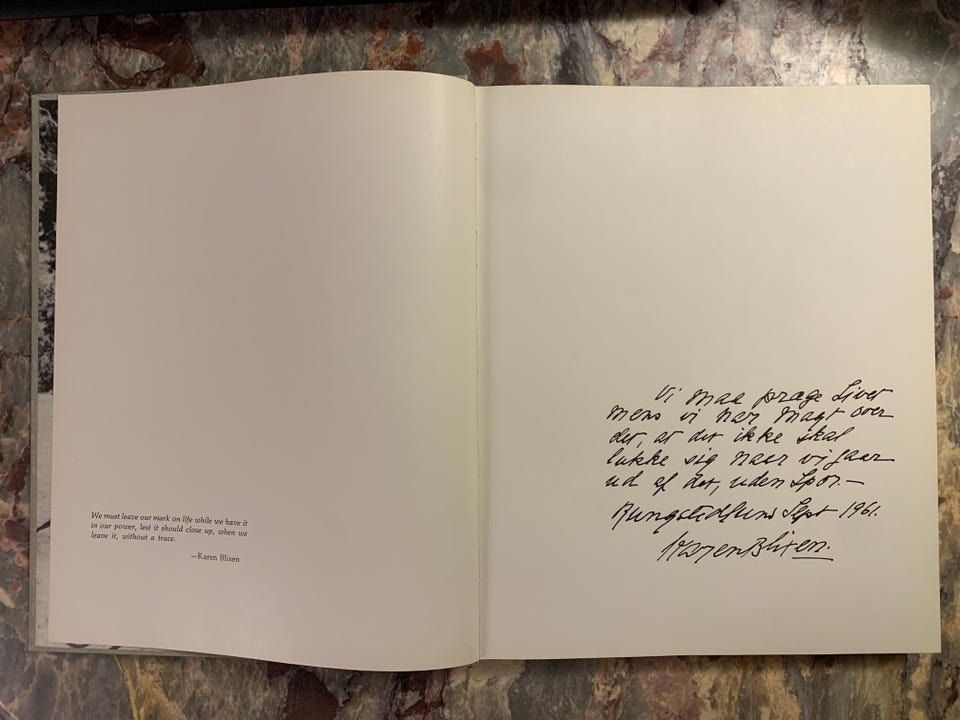 We must leave our mark on life while we have it
in our power, lest it should close up, when we
leave it, without a trace.
—Karen Blixen
Vi maa præge Livet
mens vi har Magt over
det, at det ikke skal
lukke sig naar vi gaar
ud af det, uden Spor.—
Rungstedlund Sept 1961.
Karen Blixen.